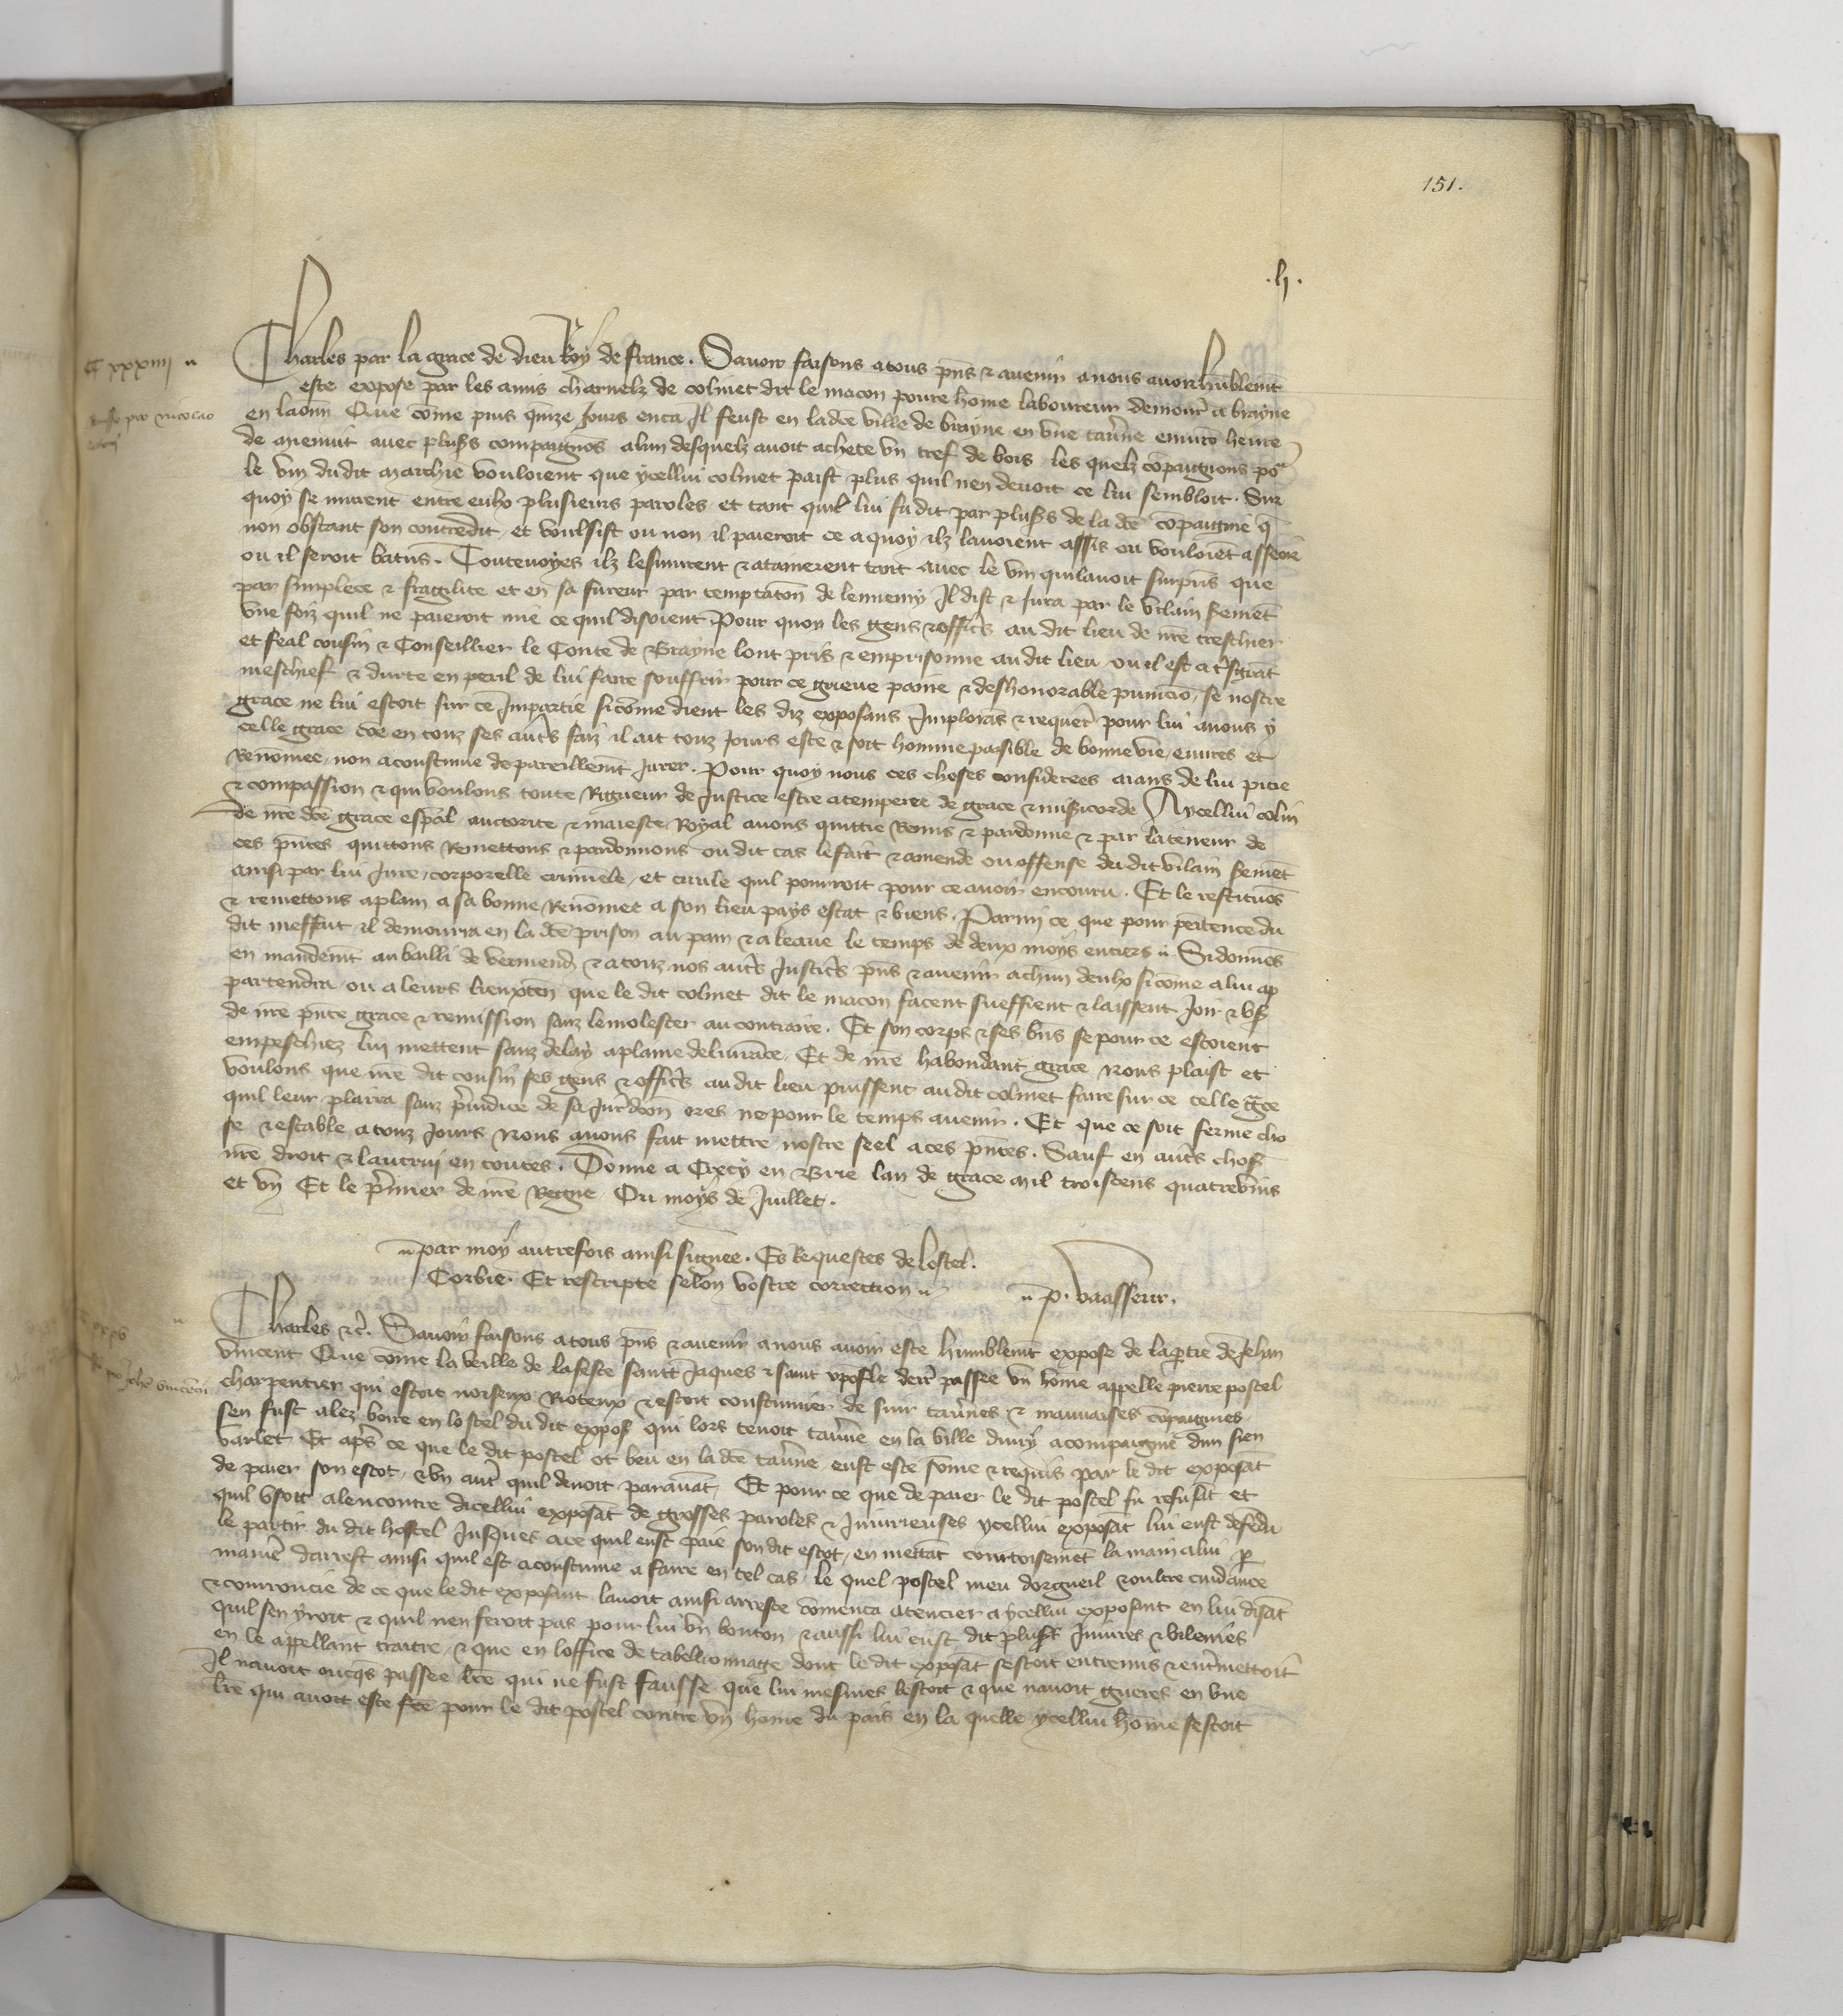 151.
.li.
C xxxiiii
Charles par la grace de dieu Roy de france. Savoir faisons a tous pns & avenir a nous avoir humblemt
este expose par les amis charnelz de colinet dit le macon povre home laboureur demourt a brayne
en laonn Que come puis quinze jours enca Il feust en la dce ville de brayne en une taverne environ heure
de mienuit avec plusrs compaignos a lun desquelz avoit achete un tref de bois, les quelz compaignons por
le vin dudit marchie vouloient que ycellui colinet paiast plus quil nen devoit ce lui sembloit. Sur
quoy se murent entre eulx plusieurs paroles et tant quil lui fu dit par plusrs de la dce compaignie q
non obstant son contredit et voulsist ou non il paieroit ce a quoy ilz lavoient assis ou vouloient asseoir
ou il seroit batus. Toutevoyes ilz lesmurent & atainerent tant avec le vin qui lavoit surpris que
par simplece & fragilite et en sa fureur par temptaton de lennemy Il dist & jura par le vilain serment
une foiz quil ne paieroit mie ce quil disoient Pour quoy les gens & offics au dit lieu de nre treschier
et feal cousin & Conseillier le Conte de Brayne lont pris & emprisonne au dit lieu ou il est a tsgrant
meschief & durte en peril de lui faire souffrir pour ce grieve paine & deshonorable punicio, se nostre
grace ne lui estoit sur ce Impartie si come dient les diz exposans Implorans & requert pour lui a nous y
celle grace coe en touz ses auts faiz il ait touz jours este & soit homme paisible de bonne vie, euvres et
Renomee, non acoustume de pareillemt jurer. Pour quoy nous ces choses considerees aians de lui pitie
& compassion & qui voulons toute Rigueur de justice estre atempree de grace & misicorde A ycellui colin
de nre dce grace espal auctorite & maieste Royal avons quittie Remis & pardonne & par la teneur de
ces pntes quittons Remettons & pardonnons ou dit cas le fait & amende ou offense du dit vilain serment
ainsi par lui jure, corporelle criminele, et civile quil pourroit pour ce avoir encouru. Et le restituos
& remettons a plain a sa bonne Renomee a son lieu pays estat & biens. Parmi ce que pour penitence du
dit meffait il demourra en la dce prison au pain & a leaue le temps de deux moys entiers Si donnos
en mandemt au bailli de vermend & a touz nos auts justics pns & avenir a chun deulx si come a lui ap
partendra ou a leurs lieuxten que le dit colinet dit le macon facent sueffrent & laissent joir & us
de nre pnte grace & remission sanz le molester au contraire. Et son corps & ses bns se pour ce estoient
empeschiez lui mettent sanz delay a plaine delivrance. Et de nre habondant grace Nous plaist et
voulons que nre dit cousin ses gens & offics au dit lieu puissent au dit colinet faire sur ce telle gce
quil leur plaira sanz piudice de sa juridicon ores ne pour le temps avenir. Et que ce soit ferme cho
se & estable a touz jours Nous avons fait mettre nostre seel a ces pntes. Sauf en auts chos
nre droit & lautrui en toutes. Donne a Crecy en Brie lan de grace mil troiscens quatrevins
et un Et le pmier de nre Regne. Ou moys de juillet.
par moy autrefois ainsi signee. Es Requestes de lostel.
Corbie. Et rescripte selon vostre correction
P. Vaasseur.
Charles &c. Savoir faisons a tous pns & avenir a nous avoir este humblemt expose de la ptie de Jehan
vincent Que come la veille de la feste saint Jaques & saint xpofle derr passee un home appelle pierre postel
charpentier qui estoit noiseux Rioteux & estoit coustumier de suir tavnes & mauvaises compaignies
sen fust alez boire en lostel du dit expos qui lors tenoit taverne en la ville divry acompaigne dun sien
varlet Et aps ce que le dit postel ot beu en la dce taverne eust este some & requis par le dit exposat
de paier son escot, & un aut quil devoit paravat, Et pour ce que de paier le dit postel fu refusat et
quil usoit a lencontre dicellui exposat de grosses paroles & jniurieuses ycellui exposat lui eust defendu
le partir du dit hostel jusques a ce quil eust paie son dit escot, en mettat courtoisement la main a lui p
maniere darrest ainsi quil est acoustume a faire en tel cas, le quel postel meu dorgueil & oultre cuidance
& courroucie de ce que le dit exposant lavoit ainsi arreste comenca a tencier a ycellui exposant en lui disat
quil sen yroit & quil nen feroit pas pour lui un bouton & aussi lui eust dit plusrs jniures & vilenies
en le appellant traitre, & que en loffice de tabellionnage dont le dit exposat sestoit entremis & entmettoit
Il navoit oncqs passee lre qui ne fust fausse que lui mesmes lestoit & que navoit gueres en une
lre qui avoit este fce pour le dit postel contre un home du pais en la quelle ycellui home sestoit